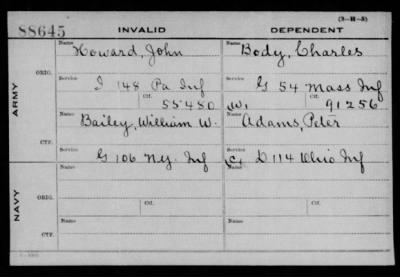 (3-H-5)
88645 INVALID DEPENDENT
ARMY
ORIG.
Name Howard, John
Name Body, Charles
Service I 148 Pa Inf
Service G 54 Mass Inf
Ctf. 55480
W. Ctf. 91256
CTF.
Name Bailey, William W.
Name Adams, Peter
Service G 106 N.Y. Inf
Service D 114 Ohio Inf
NAVY
ORIG.
Name
Name
Service
Service
Ctf.
Ctf.
CTF.
Name
Name